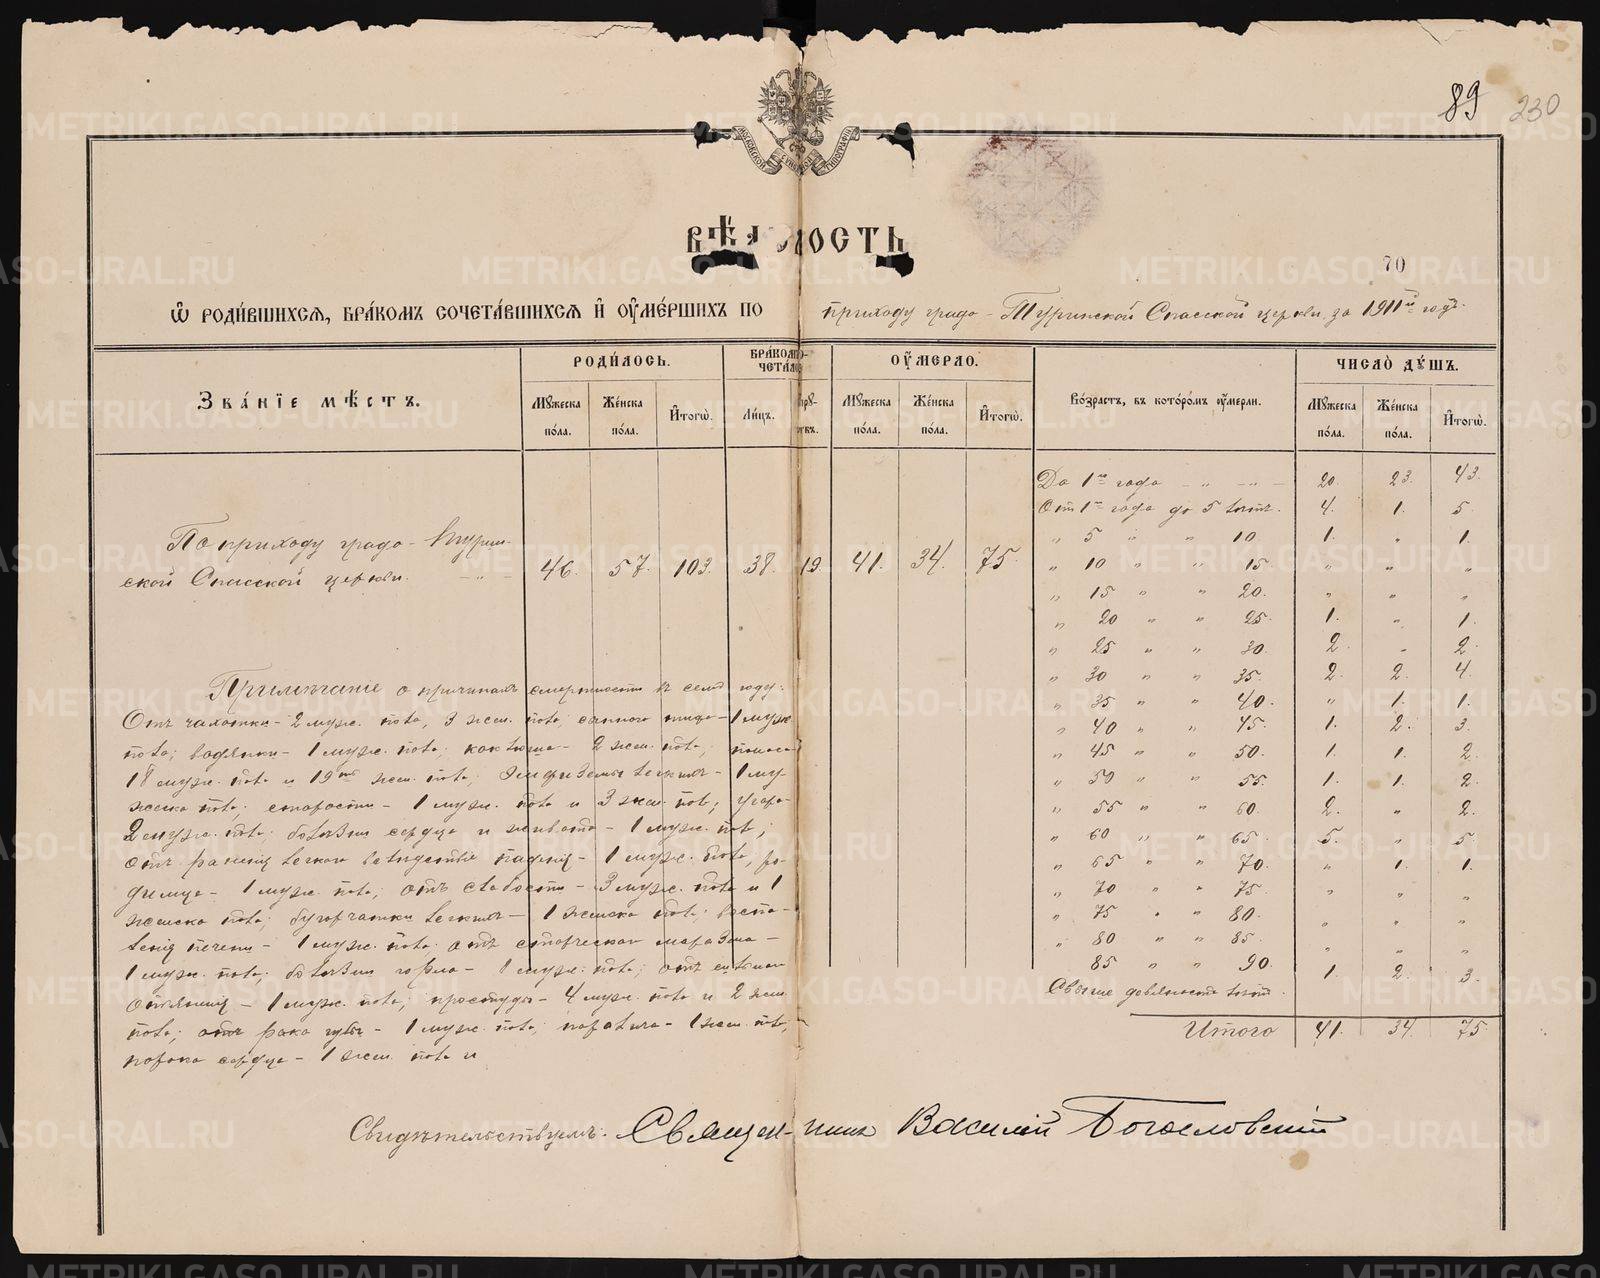 89 230
МОСКОВСКОЙ СѴНОД. ТИПОГРАФІИ
ВѢДОМОСТЬ
70
Ѡ РОДИ́ВШИХСѦ, БРА́КОМЪ СОЧЕТА́ВШИХСѦ И҆ ОУ҆МЕ́РШИХЪ ПО приходу градо-Туринской Спасской церкви за 1911й годъ.
ЗВА́НІЕ МѢ́СТЪ.
РОДИ́ЛОСЬ.
БРА́КОМЪ СО-
ЧЕТА́ЛОСЬ
ОУ҆́МЕРЛО.
Во́зрастъ, въ кото́ромъ оу҆́мерли.
ЧИСЛО̀ ДꙊ́ШЪ.
Мꙋ́жеска по́ла.
Же́нска по́ла.
И҆тогѡ̀.
Ли́цъ.
Мꙋ́жеска по́ла.
Же́нска по́ла.
И҆тогѡ̀.
Мꙋ́жеска по́ла.
Же́нска по́ла.
И҆тогѡ̀.
По приходу градо-Турин-
ской Спасской церкви. 46. 57. 103. 38. 19. 41. 34. 75.
До 1го года - „ - 20. 23. 43.
От 1го года до 5 летъ. 4. 1. 5.
„ 5 „ „ 10 1. „ 1.
„ 10 „ „ 15. „ „ „
„ 15 „ „ 20. „ „ „
„ 20 „ „ 25. 1. „ 1.
„ 25 „ „ 30. 2. „ 2.
„ 30 „ „ 35. 2. 2. 4.
„ 35 „ „ 40. „ 1. 1.
„ 40 „ „ 45. 1. 2. 3.
„ 45 „ „ 50. 1. 1. 2.
„ 50 „ „ 55. 1. 1. 2.
„ 55 „ „ 60. 2. „ 2.
„ 60 „ „ 65. 5. „ 5.
„ 65 „ „ 70. „ 1. 1.
„ 70 „ „ 75. „ „ „
„ 75 „ „ 80. „ „ „
„ 80 „ „ 85. „ „ „
„ 85 „ „ 90. 1. 2. 3.
Свыше девяноста летъ.
Итого 41. 34. 75
Примѣчаніе о причинахъ смертности въ семъ году:
Отъ чахотки - 2 муж. пола, 3 жен. пола; сыпного тифа - 1 муж.
пола; водянки - 1 муж. пола; коклюша - 2 жен. пола; поноса
18 муж. пола и 19ть жен. пола; эмфиземы легкихъ - 1 му-
жеска пола; старости - 1 муж. пола и 3 жен. пол.; угара -
2 муж. пола; болѣзни сердца и живота - 1 муж. пол.;
отъ раненія легкого вслѣдствіе паденія - 1 муж. пола, ро-
димца - 1 муж. пола; отъ слабости - 3 муж. пола и 1
женска пола; бугорчатки легкихъ - 1 женска пола; воспа-
ленія печени - 1 муж. пола. отъ старческаго маразма -
1 муж. пола; болѣзни горла - 1 муж. пола; отъ сильнаго
опьянѣнія - 1 муж. пола; простуды - 4 муж. пола и 2 жен.
пола; отъ рака губы - 1 муж. пола; паралича - 1 жен. пола,
порока сердца - 1 жен. пола и
Свидѣтельствуемъ: Священникъ Василій Богословскій
METRIKI.GASO-URAL.RU